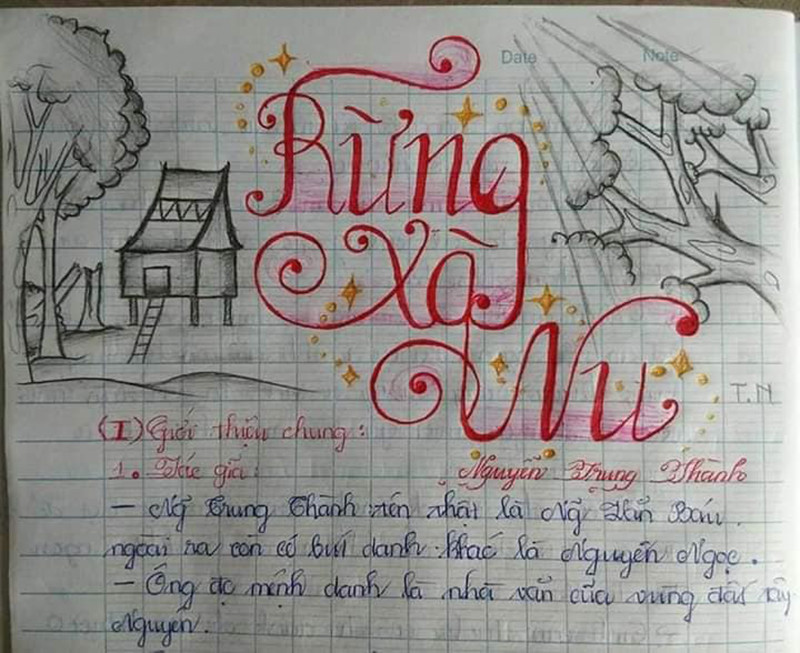 Date
Note
Rừng
Xà
Nu
T.N
(I) Giới thiệu chung:
1. Tác giả: Nguyễn Trung Thành
– Ng̃ Trung Thành tên thật là Ng̃ Văn Báu.
ngoài ra còn có bút danh khác là Nguyên Ngọc.
– Ông đc mệnh danh là nhà văn của vùng đất Tây
Nguyên.